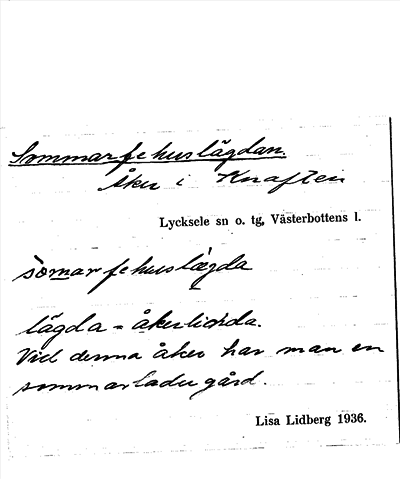 Sommarfehuslägdan.
Åker i Knaften
Lycksele sn o. tg, Västerbottens l.
sòmarfehuslægda
lägda = åker
Vid denna åker har man en
sommarladugård.
Lisa Lidberg 1936.